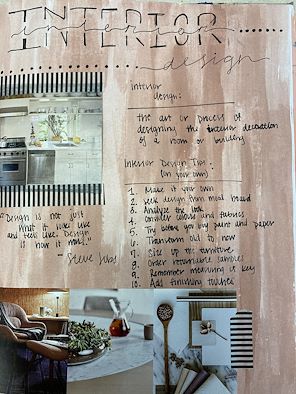 INTERIOR
interior
design
interior
design:
the art or process of
designing the interior decoration
of a room or building
Interior Design Tips:
(on your own)
1. Make it your own
2. Seek design from mood board
3. Analyze the look
4. Consider colours and fabrics
5. Try before you buy paint and paper
6. Transform old to new
7. Size up the furniture
8. Order returnable samples
9. Remember meaning is key
10. Add finishing touches
"Design is not just
what it looks like
and feels like. Design
is how it works."
- Steve Jobs